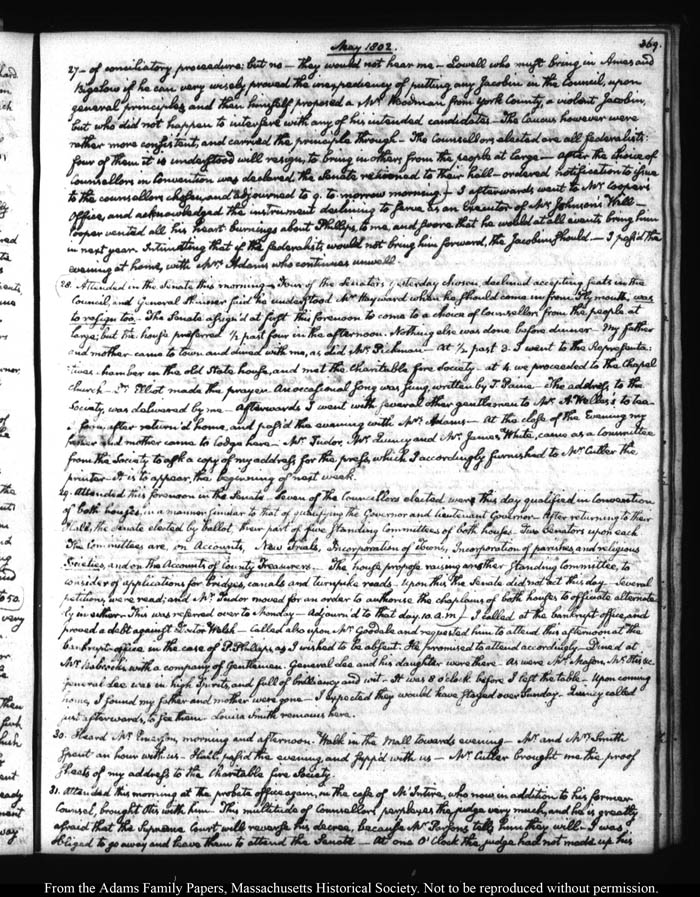 May 1802.
369.
27 - of conciliatory procedure; but no - they would not hear me - Lowell who must bring in Ames and
Bigelow if he can very wisely proved the inexpediency of putting any Jacobin in the Council, upon
general principles, and then himself proposed a Mr. Woodman from York County, a violent Jacobin,
but who did not happen to interfere with any of his intended candidates - The Caucus however were
rather more consistent, and carried the principle through - The Counsellors elected are all federalists:
four of them it is understood will resign, to bring in others from the people at large - After the choice of
Counsellors in Convention was declared the Senate returned to their hall - ordered notification to
to the counsellors chosen, and adjourned to 9. to-morrow morning - I afterwards went to Mr. Cooper's
Office, and acknowledged the instrument declining to serve as an executor of Mr. Johnson's Will -
Cooper vented all his heart burnings about Phillips to me, and swore that he would at all events bring him
in next year. Intimating that if the federalists would not bring him forward, the Jacobins should - I pass'd the
evening at home, with Mrs. Adams who continues unwell.
28. Attended in the Senate this morning - Four of the Senators yesterday chosen, declined accepting seats in the
Council, and General Skinner said he understood Mr. Hayward when he should come in from Plymouth, was
to resign too. The Senate assign'd at first this forenoon to come to a choice of Counsellors from the people at
large; but the house preferred 1/2 past four in the afternoon. Nothing else was done before dinner - My father
and mother came to town and dined with me, as did Mr. Pickman - At 1/2 past 3. I went to the Representa-
tives chamber in the old State house, and met the Charitable fire society - at 4 we proceeded to the Chapel
church - Dr. Eliot made the prayer. An occasional song was sung, written by T. Paine - The address, to the
Society, was delivered by me - Afterwards I went with several other gentlemen to Mr. A. Welles's to tea -
after return'd home, and pass'd the evening with Mrs. Adams - At the close of the Evening my
father and mother came to lodge here - Mr. Tudor, Mr. Quincy and Mr. James White, came as a Committee
from the Society to ask a copy of my address for the press, which I accordingly furnished to Mr. Cutler the
printer - It is to appear, the beginning of next week.
29. Attended this forenoon in the Senate. Seven of the Councellors elected were this day qualified in Convention
of both houses, in a manner similar to that of qualifying the Governor and Lieutenant Governor. After returning to their
Hall, the Senate elected by ballot, their part of five standing Committees of both houses. Two Senators upon each
The Committees are, on Accounts, New Trials, Incorporation of Towns, Incorporation of parishes and religious
Societies, and on the Accounts of County Treasurers. The house propose raising another standing Committee, to
consider of applications for bridges, canals and turnpike roads. Upon this the Senate did not act this day. Several
petitions, were read; and Mr. Tudor moved for an order to authorise the chaplains of both houses to officiate alternate-
ly in either. This was referred over to Monday - Adjourn'd to that day 10. a.m. - I called at the bankrupt office, and
proved a debt against Doctor Welsh - Called also upon Mr. Goodale and requested him to attend this afternoon at the
bankrupt-office, in the case of P. Phelps, as I wished to be absent. He promised to attend accordingly - Dined at
with a company of Gentlemen. General Lee and his daughter were there. As were Mr. Mason, Mr. Otis &c.
General Lee was in high spirits, and full of brilliancy and wit - It was 8 o'clock before I left the table - Upon coming
home, I found my father and mother were gone - I expected they would have stayed over Sunday - Quincy called
just afterwards, to see them. Louisa Smith remains here.
30. Heard Mr. Emerson, morning and afternoon. Walk in the Mall towards evening - Mr. and Mrs. Smith
spent an hour with us - Hall pass'd the evening, and supp'd with us - Mr. Cutler brought me the proof
sheets of my address to the Charitable fire Society.
31. Attended this morning at the probate office again, on the case of M'Intire, who now in addition to his former
Counsel, brought Otis with him. This multitude of Counsellors perplexes the judge very much, and he is greatly
afraid that the Supreme Court will reverse his decree, because Mr. Parsons tells him they will - I was
obliged to go away and leave them to attend the Senate - At one O'Clock the judge had not made up his
From the Adams Family Papers, Massachusetts Historical Society. Not to be reproduced without permission.